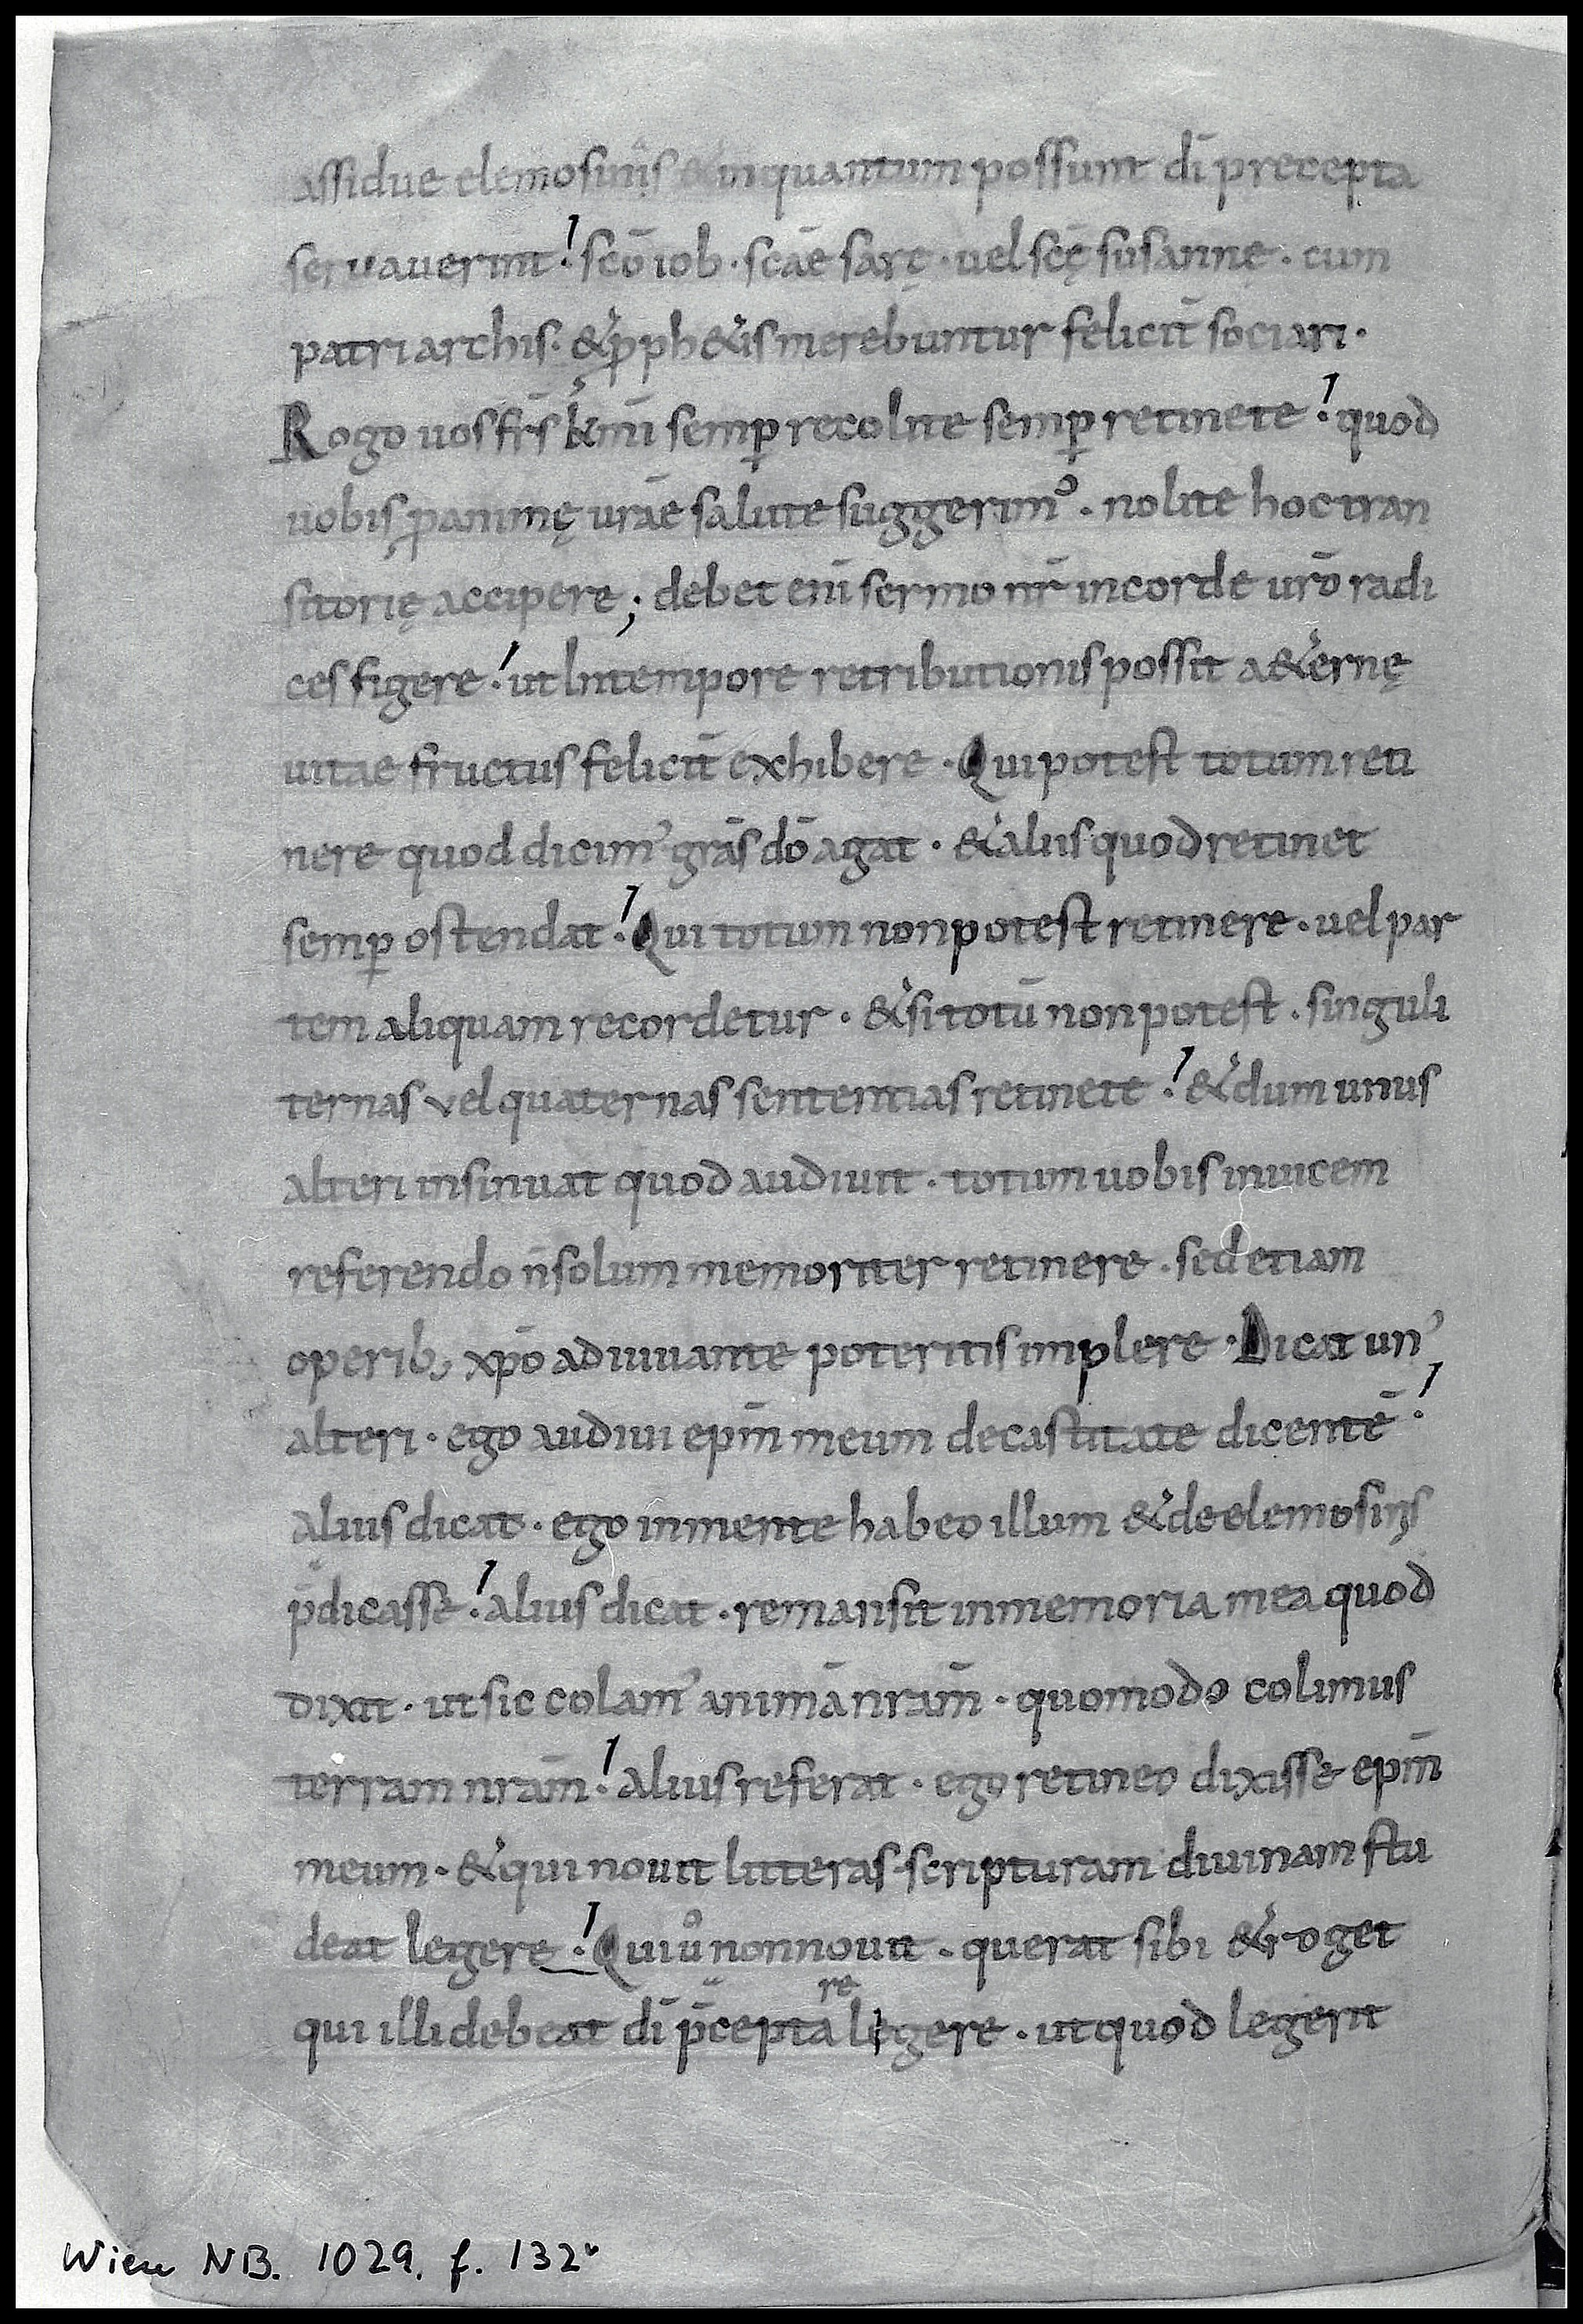 assidue elemosinis & inquantum possunt dī precepta
servauerint. scō iob. scāe sarę. uel scę susannę. cum
patriarchis. & pph&is merebuntur felicit̄ sociari.
Rogo uos fr̄s kmī semp̱ recolite semp̱ retinete. quod
uobis ꝓ animę urāe salute suggerim᾿. nolite hoc tran
sitorię accipere; debet enī sermo nr̄ incorde urō radi
ces figere. ut intempore retributionis possit a&ernę
uitae fructus felicit̄ exhibere. Qui potest totum reti
nere quod dicim᾿ grās dō agat. & aliis quod retinet
semp̱ ostendat. Qui totum non potest retinere. uel par
tem aliquam recordetur. & si totū non potest. singuli
ternas vel quaternas sententias retinete. & dum unus
alteri insinuat quod audiuit. totum uobis inuicem
referendo n̄ solum memoriter retinere. sed etiam
operib; xp̄o adiuuante poteritis implere. Dicat un᾿
alteri. ego audiui epm̄ meum decastitate dicentē.
alius dicat. ego inmente habeo illum & de elemosinis
p̄dicasse. alius dicat. remansit inmemoria mea quod
dixit. ut sic colam᾿ animā nrām. quomodo colimus
terram nrām. alius referat. ego retineo dixisse epm̄
meum. & qui nouit litteras. scripturam diuinam stu
deat legere. Qui ū non nouit. querat sibi & roget
re
qui illi debeat dī p̄cepta legere. ut quod legerit
Wien NB. 1029. f. 132ᵛ